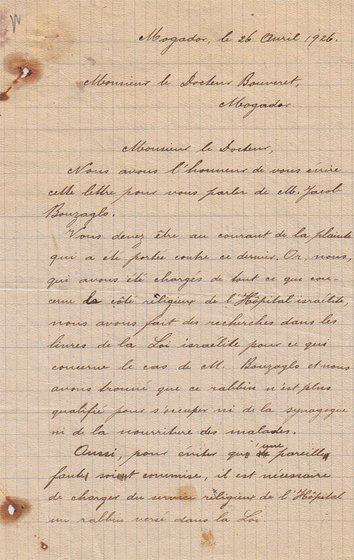 Mogador, le 26 Avril 1926.
Monsieur le Docteur Bouveret,
Mogador
Monsieur le Docteur,
Nous avons l'honneur de vous écrire
cette lettre pour vous parler de M. Jacob
Bouzaglo.
Vous devez être au courant de la plainte
qui a été portée contre ce dernier. Or, nous,
qui avons été chargés de tout ce que con-
cerne le côté religieux de l'Hôpital israélite,
nous avons fait des recherches dans les
livres de la Loi israélite pour ce qui
concerne le cas de M. Bouzaglo et nous
avons trouvé que ce rabbin n'est plus
qualifié pour s'occuper ni de la synagogue
ni de la nourriture des malades.
Aussi, pour éviter qu'une pareille
faute soit commise, il est nécessaire
de charger du service religieux de l'Hôpital
un rabbin versé dans la Loi